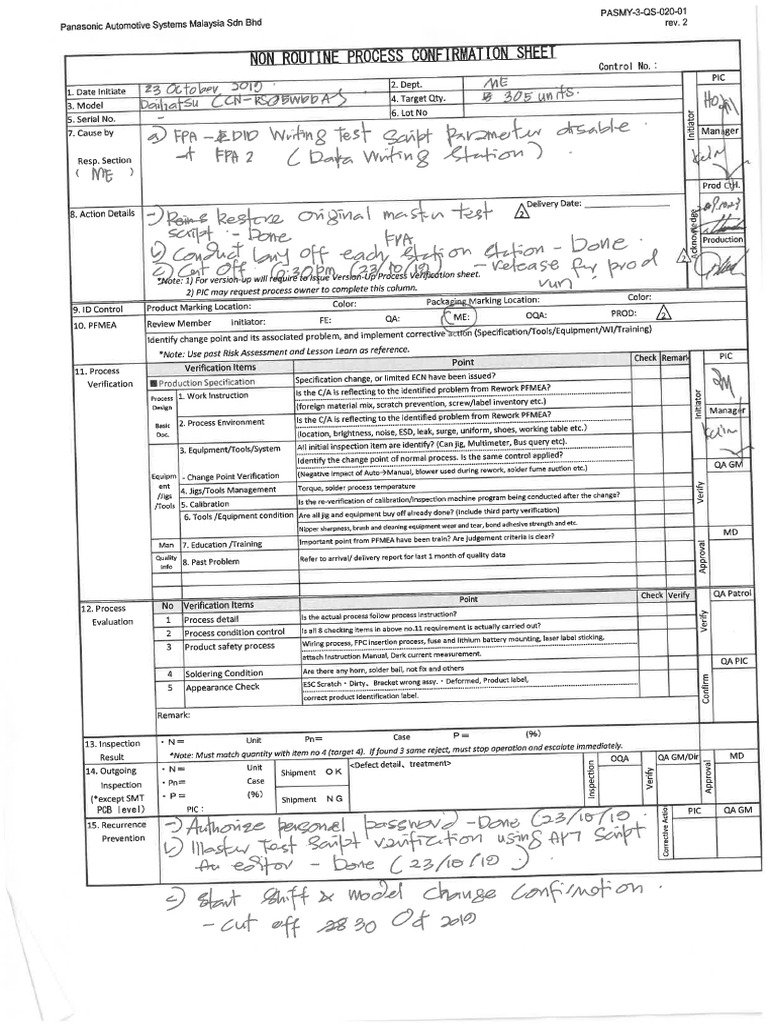 Panasonic Automotive Systems Malaysia Sdn Bhd
PASMY-3-QS-020-01
rev. 2
NON ROUTINE PROCESS CONFIRMATION SHEET
Control No. :
1. Date Initiate 23 October 2019 2. Dept. ME
3. Model Daihatsu 4. Target Qty. 305 units.
5. Serial No. - 6. Lot No
7. Cause by
Resp. Section
( ME )
a) FPA - DID Writing Test Script Parameter disable
FPA 2 ( Data Writing Station )
Initiator
PIC
Manager
Prod Ctrl.
Acknowledge
Production
8. Action Details
Delivery Date:
2
Restore original master test
script - Done
b) Conduct buy off each FVA station - Done
c) Cut Off 6:30pm (23/10/19) - release for prod
run
*Note: 1) For version-up will require to issue Version-Up Process Verification sheet.
2) PIC may request process owner to complete this column.
2
9. ID Control Product Marking Location: Color: Packaging Marking Location: Color:
10. PFMEA Review Member Initiator: FE: QA: ME: OQA: PROD: 2
Identify change point and its associated problem, and implement corrective action (Specification/Tools/Equipment/WI/Training)
*Note: Use past Risk Assessment and Lesson Learn as reference.
11. Process
Verification
Verification Items Point Check Remark
■ Production Specification Specification change, or limited ECN have been issued?
Process Design
Basic Doc.
1. Work Instruction Is the C/A is reflecting to the identified problem from Rework PFMEA?
(foreign material mix, scratch prevention, screw/label inventory etc.)
2. Process Environment Is the C/A is reflecting to the identified problem from Rework PFMEA?
(location, brightness, noise, ESD, leak, surge, uniform, shoes, working table etc.)
Equipm
ent
/Jigs
/Tools
3. Equipment/Tools/System All initial inspection item are identify? (Can jig, Multimeter, Bus query etc).
Identify the change point of normal process. Is the same control applied?
- Change Point Verification (Negative impact of Auto→Manual, blower used during rework, solder fume suction etc.)
4. Jigs/Tools Management Torque, solder process temperature
5. Calibration Is the re-verification of calibration/inspection machine program being conducted after the change?
6. Tools /Equipment condition Are all jig and equipment buy off already done? (include third party verification)
Nipper sharpness, brush and cleaning equipment wear and tear, bond adhesive strength and etc.
Man 7. Education /Training Important point from PFMEA have been train? Are judgement criteria is clear?
Quality info 8. Past Problem Refer to arrival/ delivery report for last 1 month of quality data
Initiator
PIC
Manager
Verify
QA GM
Approval
MD
12. Process
Evaluation
No Verification Items Point Check Verify
1 Process detail Is the actual process follow process instruction?
2 Process condition control Is all 8 checking items in above no.11 requirement is actually carried out?
3 Product safety process Wiring process, FPC insertion process, fuse and lithium battery mounting, laser label sticking,
attach Instruction Manual, Derk current measurement.
4 Soldering Condition Are there any horn, solder ball, not fix and others
5 Appearance Check ESC Scratch・Dirty、Bracket wrong assy.・Deformed, Product label,
correct product identification label.
Remark:
Verify
QA Patrol
Confirm
QA PIC
13. Inspection
Result
・N= Unit Pn= Case P = (%)
*Note: Must match quantity with item no 4 (target 4). If found 3 same reject, must stop operation and escalate immediately.
14. Outgoing
Inspection
(*except SMT
PCB level)
・N= Unit
・Pn= Case
・P = (%)
PIC :
Shipment O K
Shipment N G
<Defect detail、treatment>
Inspection
OQA
Verify
QA GM/Dir
Approval
MD
15. Recurrence
Prevention
Authorize personel password - Done (23/10/19
b) Master Test Script verification using Script
editor - Done ( 23/10/19 )
Corrective Actio
PIC
QA GM
c) Start Shift & model Change Confirmation.
- cut off 30 Oct 2019